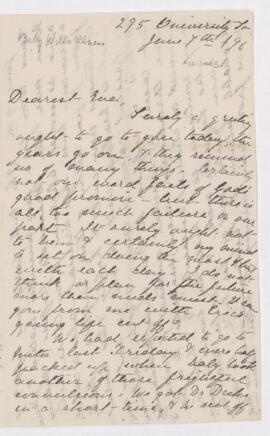 295 University St
June 7th 190
Baby Will's illness
Dearest Eva,
Surely a greeting
ought to go to you today. The
years go on & they remind
us of many things. Certainly
not one word fails of God's
good promise – but there is
all too much failure on our
part – It surely ought not
to be so & certainly my mind
is set on doing the most & best
with each day. I do not
think or plan for the future
more than needs must. It can
from one with
young life cut off –
We had expected to go to
last Friday & were all
packed up when baby took
another of those frightful
convulsions. We got Dr
in a short time, & he sent off